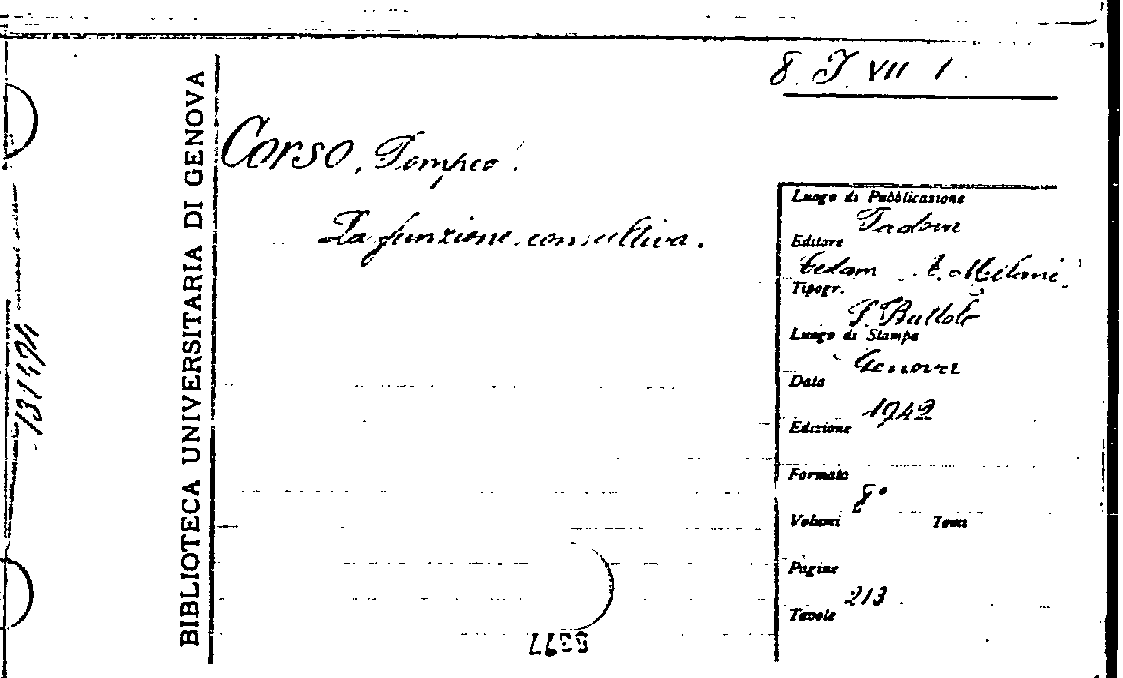 8 J VII 1
BIBLIOTECA UNIVERSITARIA DI GENOVA
Corso, Pompeo.
La funzione consultiva.
Luogo di Pubblicazione
Padova
Editore
Cedam A. Milani
Tipogr.
Luogo di Stampa
Genova
Data
1942
Edizione
Formato
8°
Volumi Tomi
Pagine
213
Tavole
131494
5377